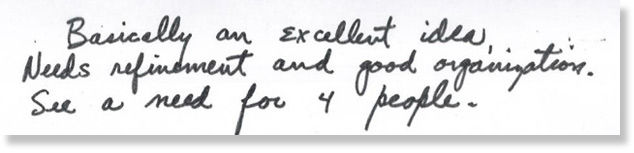 Basically an excellent idea.
Needs refinement and good organization.
See a need for 4 people.